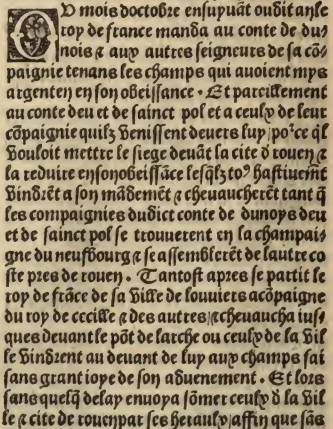 OV mois doctobre ensuyuãt oudit anle
roy de france manda au conte de du⸗
nois ⁊ aux autres seigneurs de sa cõ⸗
paignie tenans les champs qui auoient mys
argenten en son obeissance. Et pareillement
au conte deu et de sainct pol et a ceulx de leur
cõpaignie quilz venissent deuers luy po²ce ql̃
vouloit mettre le siege deuãt la cite d rouen ⁊
la reduire ensonobeissãce lesq̃lz to⁹ hastiuemẽt
vindrẽt a son mãdemẽt ⁊ cheuaucherẽt tant q̃
les compaignies dudict conte de dunoys deu
et de sainct pol se trouuerent en la champai⸗
gne du neufbourg ⁊ se assemblerẽt de lautre co
ste pres de rouen. Tantost apres se partit le
roy de frãce de sa ville de louuiers acõpaigne
du roy de cecille ⁊ des autres ⁊ cheuaucha ius⸗
ques deuantlay põt de larche ou ceulx de la vil
le vindrent au deuant de luy aux champs fai
sans grant ioye de son aduenement. Et lors
sans quelq̃ delay enuoya sõmer ceulx d̃ la vil
le ⁊ cite de rouen par ses heraulx affin que sãs